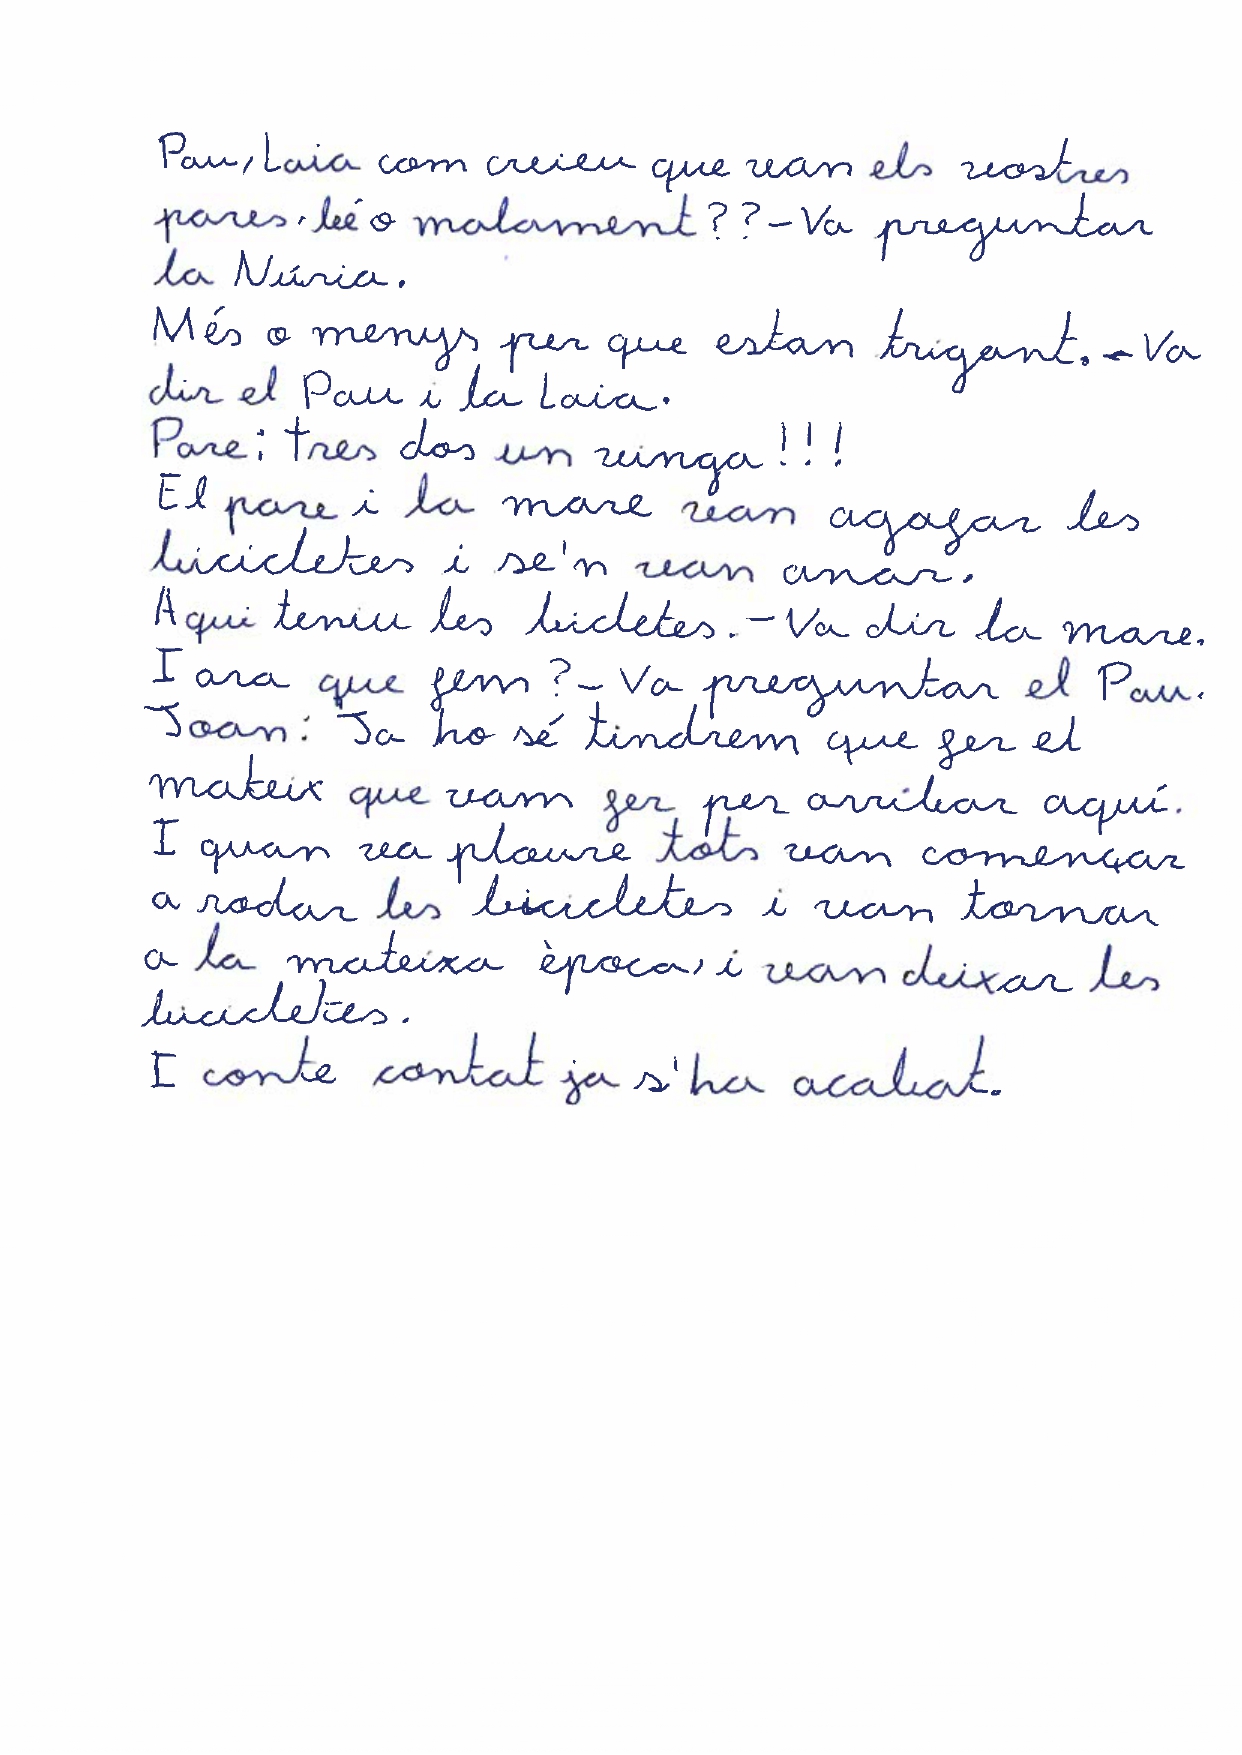 Pau, Laia com creieu que van els vostres
pares, bé o malament??-Va preguntar
la Núria.
Més o menys per que estan trigant.-Va
dir el Pau i la Laia.
Pare: tres dos un vinga!!!
El pare i la mare van agafar les
bicicletes i se'n van anar.
Aqui teniu les bicletes.-Va dir la mare.
I ara que fem?-Va preguntar el Pau.
Joan: Ja ho sé tindrem que fer el
mateix que vam fer per arribar aquí.
I quan va ploure tots van començar
a rodar les bicicletes i van tornar
a la mateixa època, i van deixar les
bicicletes.
I conte contat ja s'ha acabat.